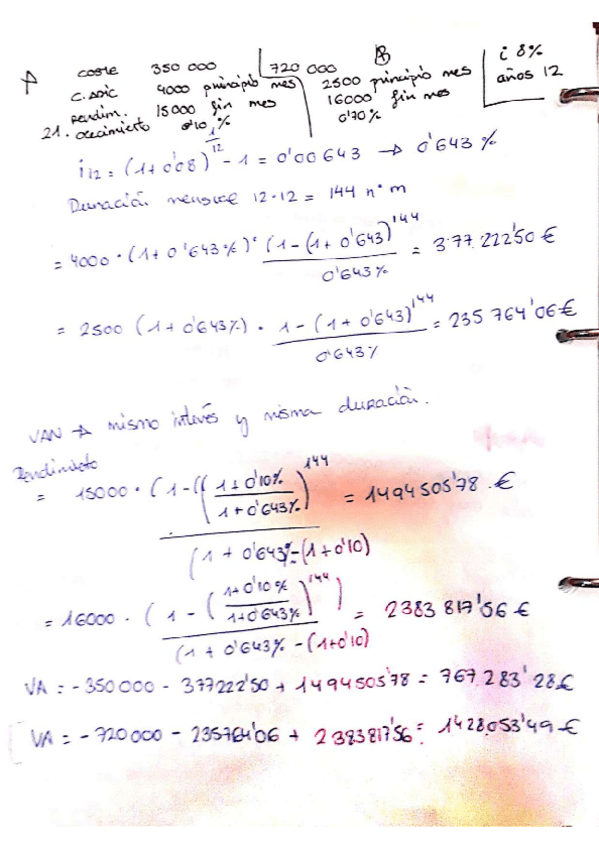 A
coste 350 000 720 000 B i 8%
c. adic 4000 principio mes 2500 principio mes años 12
rendim. 15000 fin mes 16000 fin mes
21. crecimiento 0'10 % 0'70 %
i12 = (1+0'08)^1/12 - 1 = 0'00643 → 0'643 %
Duración mensual 12·12 = 144 nº m
= 4000 · (1+0'643%)· (1-(1+0'643)^144 / 0'643% = 377 222'50 €
= 2500 (1+0'643%) · 1-(1+0'643)^144 / 0'643% = 235 764'06 €
VAN → mismo interés y misma duración.
Rendimieto
= 15000 · (1-((1+0'10% / 1+0'643%)^144 / (1+0'643%-(1+0'10) = 1494505'78 €
= 16000 · (1-(1+0'10% / 1+0'643%)^144) / (1+0'643%-(1+0'10) = 2383 817'56 €
VA = -350000 - 377222'50 + 1494505'78 = 767.283'28€
VA = -720000 - 235764'06 + 2383817'56 = 1428053'49 €